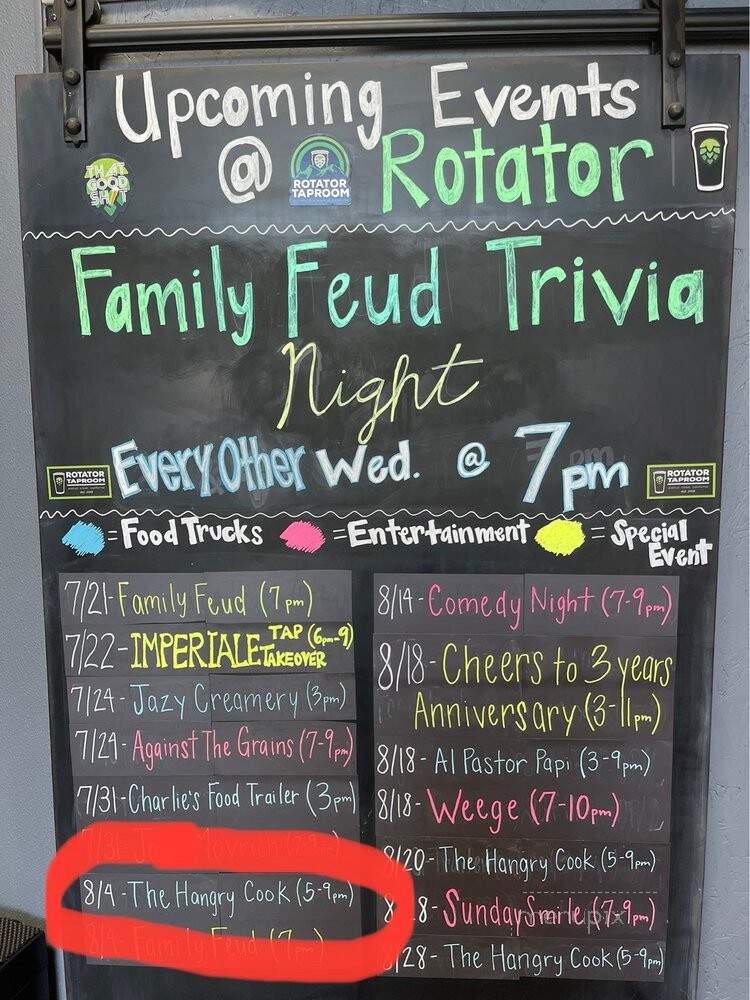 Upcoming Events
@ Rotator
THAT
GOOD
SH*T
ROTATOR
TAPROOM
Family Feud Trivia
Night
Every Other Wed. @ 7pm
ROTATOR
TAPROOM
ROTATOR
TAPROOM
= Food Trucks = Entertainment = Special
Event
7/21-Family Feud (7pm)
7/22-IMPERIALE TAP (6pm-9)
TAKEOVER
7/24-Jazy Creamery (3pm)
7/24-Against The Grains (7-9pm)
7/31-Charlie's Food Trailer (3pm)
7/31-
8/4-The Hangry Cook (5-9pm)
8/4-Family Feud (7pm)
8/14-Comedy Night (7-9pm)
8/18-Cheers to 3 years
Anniversary (3-11pm)
8/18-Al Pastor Papi (3-9pm)
8/18-Weege (7-10pm)
8/20-The Hangry Cook (5-9pm)
Sunday Smile (7-9pm)
/28-The Hangry Cook (5-9pm)
menupix